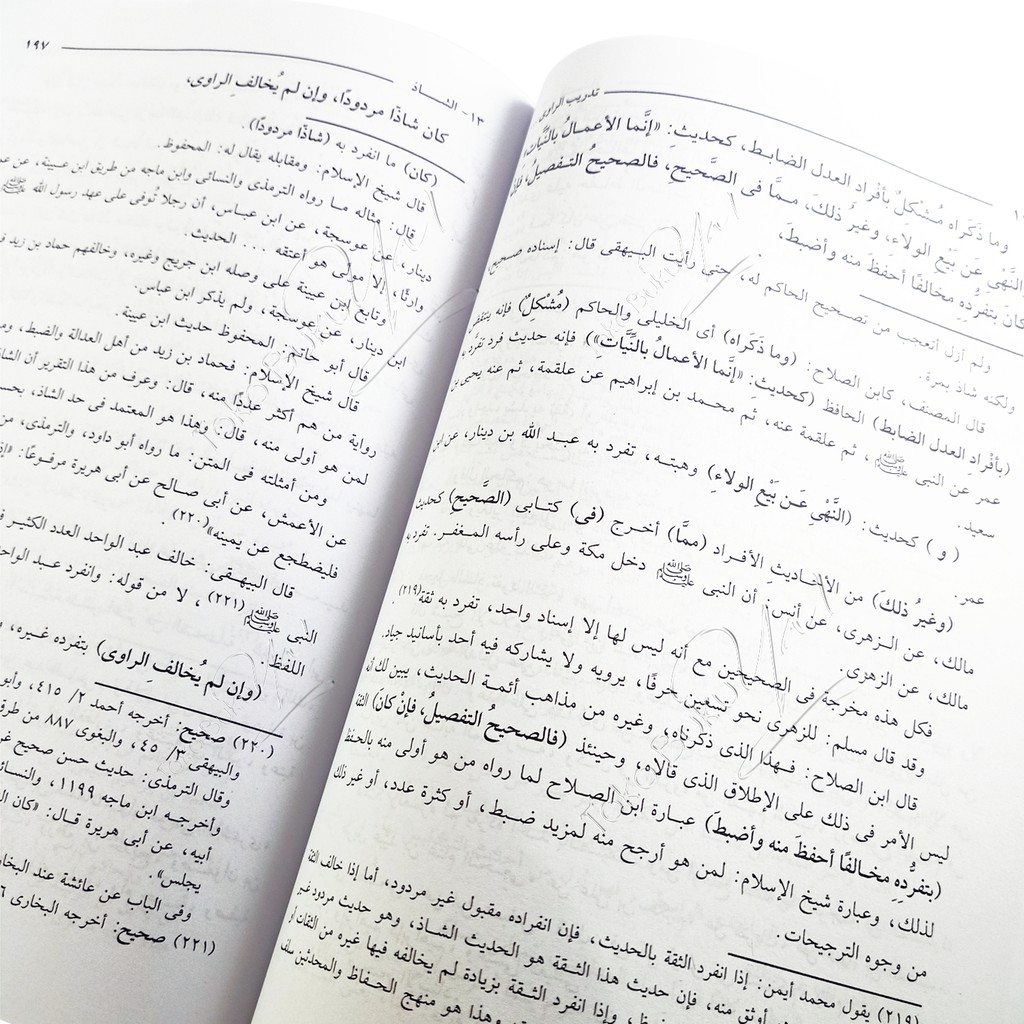 تدريب الراوى
وما ذَكَراه مُشْكلٌ بأفْرادِ العدل الضابـط، كحديثِ: «إنَّما الأعمـالُ بالنِّيَّات،
النَّهْي عَن بَيْعِ الولاءِ، وغيرُ ذلكَ، مـمَّا فى الصَّحيحِ، فالصحيحُ التـفصيلُ، فإن
كان بتفرُّدِه مخالفًا أحفظَ منه وأضبطَ،
ولم أزل أتعجب من تصـحيح الحاكم له، حتى رأيت البـيهقى قال: إسناده صحيح
ولكنه شاذ بمرة.
قال المصنف، كابن الصلاح: (وما ذَكَراه) أى الخليلى والحاكم (مُشْكلٌ) فإنه ينتقض
(بأفْرادِ العدل الضابط) الحافظ (كحديث: «إنَّما الأعمالُ بالنِّيَّاتِ») فإنه حديث فرد تفرَّد به
عمر عن النبى ﷺ، ثم علقمة عنه، ثم محـمد بن إبراهيم عن علقمة، ثم عنه يحيى بن
سعيد.
( و ) كحديث: (النَّهْىِ عَـن بَيْعِ الولاءِ) وهبتـه، تفرد به عبـد الله بن دينار، عن ابن
عمر.
(وغيرُ ذلكَ) من الأحـاديثِ الأفـراد (ممَّا) أخـرج (فى) كتـابى (الصَّحيحِ) كحديث
مالك، عن الـزهرى، عن أنس: أن النبى ﷺ دخل مكة وعلى رأسه المـغفـر. تفرد به
مالك، عن الزهرى.
فكل هذه مخرجة فى الصحيحين مع أنه ليس لها إلا إسناد واحد، تفرد به ثقة(٢١٩).
وقد قال مسلم: للزهرى نحو تسعين حرفًا، يرويه ولا يشاركه فيه أحد بأسانيد جياد.
قال ابن الصلاح: فـهذا الذى ذكرناه، وغيره من مذاهب أئمـة الحديث، يبين لك أن
ليس الأمر فى ذلك على الإطلاق الذى قالاه، وحينئذ (فالصحيحُ التفصيلُ، فإنْ كانَ) الثقة
(بتفرُّدِهِ مخـالفًا أحفظَ منه وأضبطَ) عبـارة ابن الصـلاح لما رواه من هو أولى منه بالحفظ
لذلك، وعبارة شيخ الإسلام: لمن هو أرجح منه لمزيد ضـبط، أو كثرة عدد، أو غير ذلك
من وجوه الترجيحات.
(٢١٩) يقول محمد أيمن: إذا انفرد الثقة بالحديث، فإن انفراده مقبول غير مردود، أما إذا خالف الثقة
أوثق منه، فإن حديث هذا الثـقة هو الحديث الشـاذ، وهو حديث مردود غير
وإذا انفرد الثـقة بزيادة لم يخالفه فيها غيره من الثقات أو
وهذا هو منهج الحـفاظ والمحدثين سلف
١٣- الشـاذ
١٩٧
كان شاذًا مردودًا، وإن لم يُخالفِ الراوى،
(كان) ما انفرد به (شاذًا مردودًا).
قال شيخ الإسلام: ومقابله يقال له: المحفوظ.
قال: مثاله مـا رواه الترمذى والنسائى وابن ماجه من طريق ابن عيينة، عن عمرو
دينار، عن عوسجة، عن ابن عبـاس، أن رجلا تُوفى على عهد رسول الله ﷺ
وارثًا، إلا مولًى هو أعتقه ... الحديث.
وتابع ابن عيينة على وصله ابن جريج وغيره، وخالفهم حماد بن زيد
ابن دينار، عن عوسجة، ولم يذكر ابن عباس.
قال أبو حاتم: المحفوظ حديث ابن عيينة.
قال شيخ الإسـلام: فحماد بن زيد من أهل العدالة والضبط،
رواية من هم أكثر عددًا منه، قال: وعرف من هذا التقرير أن الشاذ
لمن هو أولى منه، قال: وهذا هو المعتمد فى حد الشاذ، بحسب
ومن أمثلته فى المتن: ما رواه أبو داود، والترمذى، من
عن الأعمش، عن أبى صـالح عن أبى هريرة مرفـوعًا: «إذا
فليضطجع عن يمينه»(٢٢٠).
قال البيهـقى: خالف عبد الواحد العدد الكثيـر
النبى ﷺ(٢٢١)، لا من قوله: وانفرد عبـد الواحد
اللفظ.
(وإن لم يُخالفِ الراوى) بتفرده غيـره،
(٢٢٠) صحيح: أخرجه أحمد ٢/ ٤١٥، وأبو
والبيهقى ٣/ ٤٥، والبغوى ٨٨٧ من طرق
وقال الترمذى: حديث حسن صحيح
وأخرجـه ابن ماجه ١١٩٩، والنسائى
أبيه، عن أبى هريرة قـال: «كان
يجلس».
وفى الباب عن عائشة عند البخارى
(٢٢١) صحيح: أخرجه البخارى
Toko Buku
Toko Buku